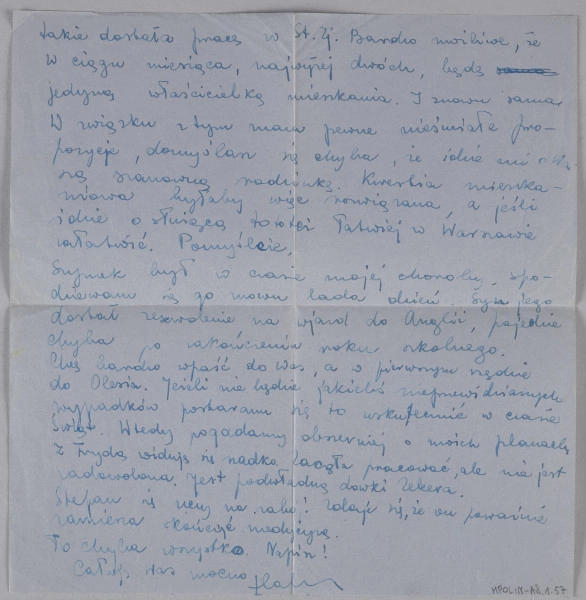 także dostała pracę w St. Zj. Bardzo możliwe, że
w ciągu miesiąca, najwyżej dwóch, będę
jedyną właścicielką mieszkania. I znowu sama.
W związku z tym mam pewne nieśmiałe pro-
pozycje, domyślasz się chyba, że idzie mi o Wa-
szą szanowną rodzinkę. Kwestia mieszka-
niowa byłaby więc rozwiązana, a jeśli
idzie o służącą to też łatwiej w Warszawie
załatwić. Pomyślcie.
Szymek był w czasie mojej choroby, spo-
dziewam się go znowu lada dzień. Syn jego
dostał zezwolenie na wjazd do Anglii, pojedzie
chyba po zakończeniu roku szkolnego.
Chcę bardzo wpaść do Was, a w pierwszym rzędzie
do Olesia. Jeśli nie będzie jakichś nieprzewidzianych
wypadków postaram się to uskutecznić w czasie
Świąt. Wtedy pogadamy obszerniej o moich planach.
Z Frydą widuję się rzadko. Zaczęła pracować, ale nie jest
zadowolona. Jest podwładną
Stefan się uczy na Zdaje się, że on poważnie
zamierza skończyć medycynę.
To chyba wszystko. Napisz!
Całuję Was mocno
MPOLIN-A2.1.57